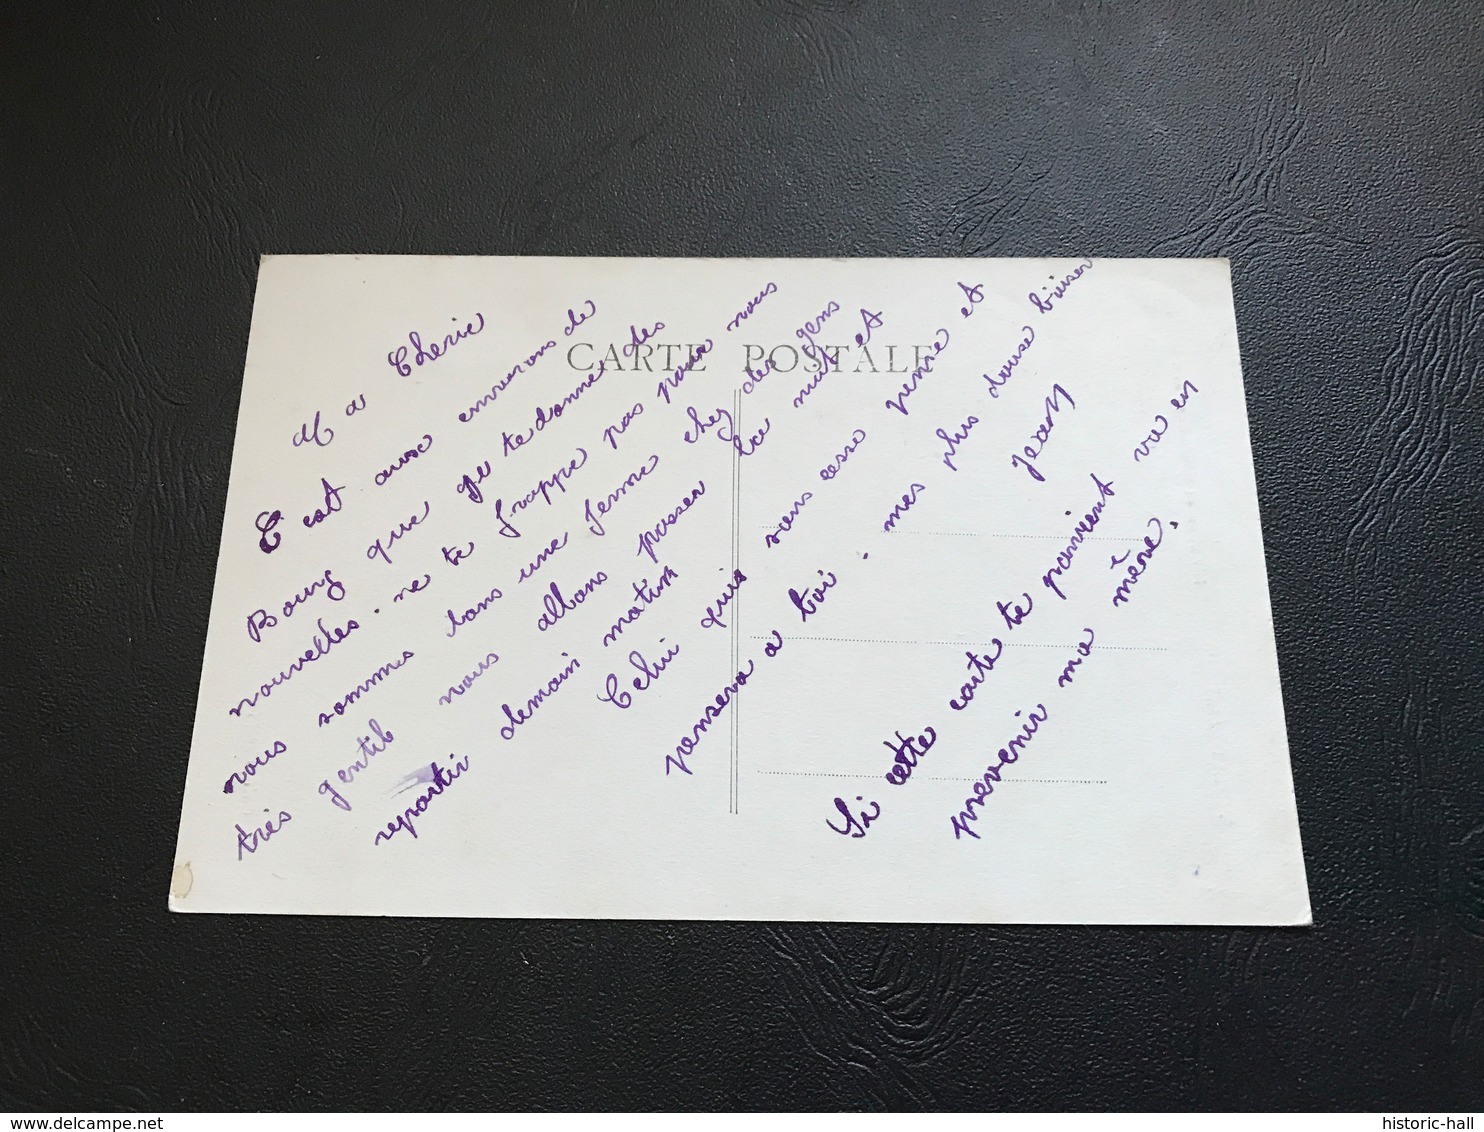 CARTE POSTALE
Ma Cherie
C'est aux environs de
Bourg que je te donne des
nouvelles. ne te frappe pas pour nous
nous sommes dans une ferme chez des gens
très gentil nous allons passer la nuit et
repartir demain matin
Celui qui sans cesse pense et
pensera a toi. mes plus douse baiser
Jean
Si cette carte te parvient va en
prevenir ma mère.
historic-hall